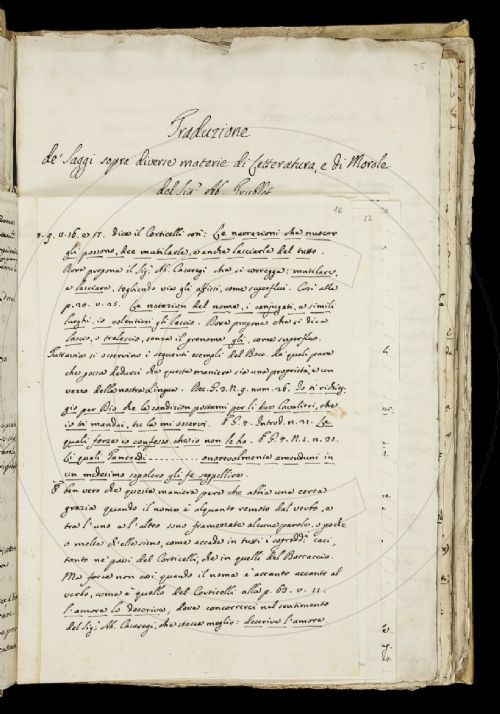 25
Traduzione
de' Saggi sopra diverse materie di Letteratura, e di Morale
del Sig.r Ab. Trublet
16
12
p. 9. v. 16. e 17. dice il Corticelli così: Le narrazioni che nuocer
gli possono, dee mutilarle, e anche lasciarle del tutto.
Bora propone il Sig. Ab. Casaregi che si corregga: mutilare,
e lasciare, togliendo via gli affissi, come superflui. Così alla
p. 20. v. 25. La notazion del nome, i conjugati, e simili
luoghi, io volentieri gli lascio. Bora propone che si dica
lascio, o tralascio, senza il pronome gli, come superfluo.
Tuttavia si osservino i seguenti esempli del Bocc. da' quali pare
che possa dedursi che questa maniera sia una proprietà, e un
vezzo della nostra lingua. Boc. G. 3. N. 9. num. 26. Io ti richieg-
gio per Dio che la condizion postami per li due Cavalieri, che
io ti mandai, tu la mi osservi. G. 4. Introd. n. 21. Le
quali forze io confesso che io non le ho. G. 4. N. 1. n. 31.
Li quali Tancredi .......... onorevolmente amenduni in
un medesimo sepolcro gli fe seppellire.
È ben vero che questa maniera pare che abbia una certa
grazia quando il nome è alquanto remoto dal verbo, e
tra l'uno e l'altro sono frammezzate alcune parole, o poche
o molte ch'elle sieno, come accade in tutti i sopradd.i casi,
tanto ne' passi del Corticelli, che in quelli del Boccaccio.
Ma forse non così quando il nome è accanto accanto al
verbo, come è quello del Corticelli alla p. 63. v. 11.
l'amore lo descrive, dove concorrerei nel sentimento
del Sig. Ab. Casaregi, che stesse meglio: descrive l'amore